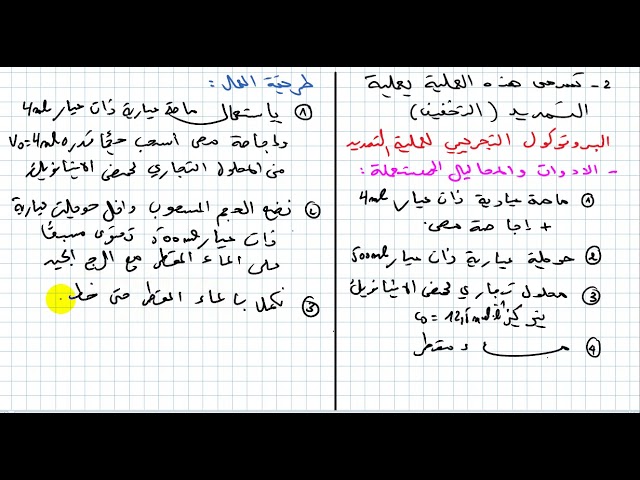 2- تسمى هذه العملية بعملية
التمديد (التخفيف)
البروتوكول التجريبي لعملية التمديد
- الادوات والمحاليل المستعملة :
1 ماصة عيارية ذات عيار 4ml
+ إجاصة مص.
2 حوجلة عيارية ذات عيار 500ml
3 محلول تجاري لحمض الايثانويك
تركيزه c0 = 12,5 mol.l-1
4 مـــاء مقطر
طريقة العمل :
1 باستعمال ماصة عيارية ذات عيار 4ml
وإجاصة مص أسحب حجمًا قدره V0=4ml
من المحلول التجاري لحمض الايثانويك
2 نضع الحجم المسحوب داخل حوجلة عيارية
ذات عيار 500ml تحتوي مسبقًا
على الماء المقطر مع الرج الجيد
3 نكمل بالماء المقطر حتى خط .